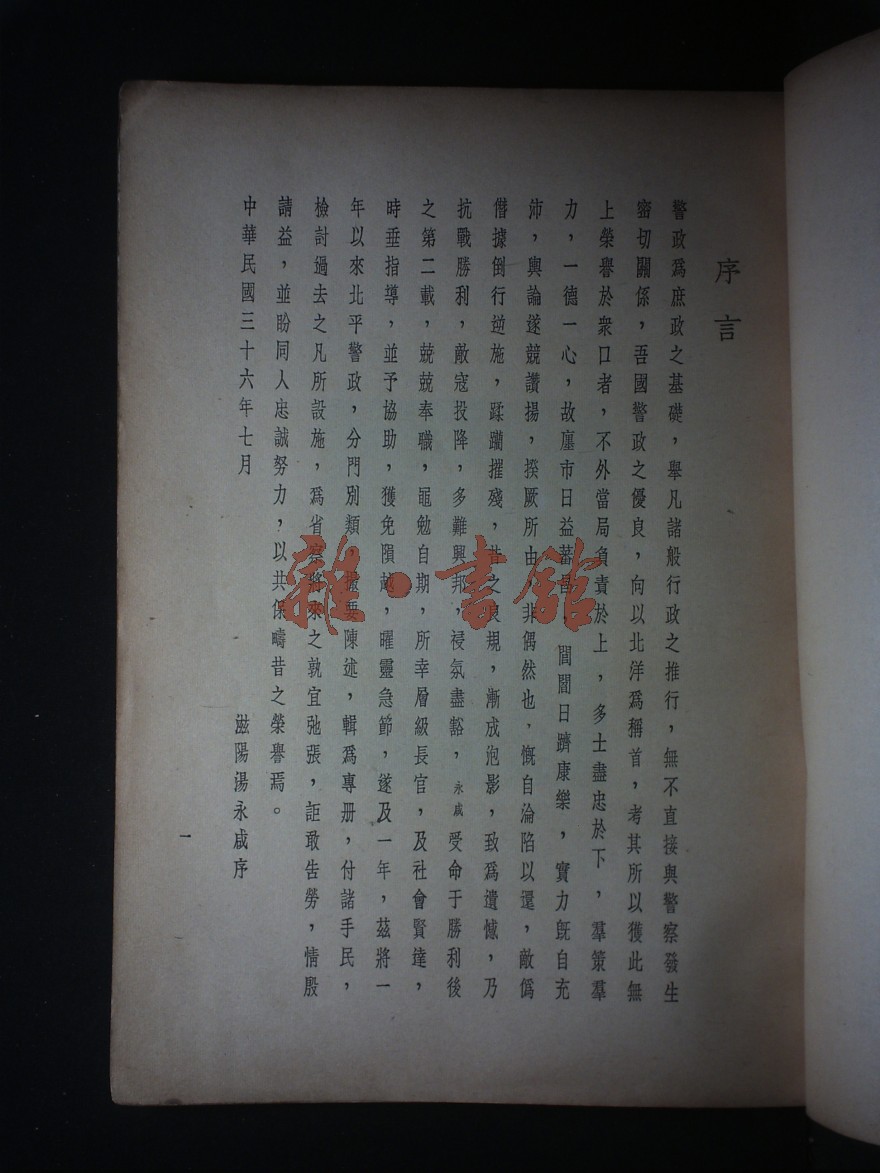 序言
警政爲庶政之基礎，舉凡諸般行政之推行，無不直接與警察發生
密切關係，吾國警政之優良，向以北洋爲稱首，考其所以獲此無
上榮譽於衆口者，不外當局負責於上，多士盡忠於下，羣策羣
力，一德一心，故廛市日益蕃昌，閭閻日躋康樂，實力既自充
沛，輿論遂競讚揚，揆厥所由，非偶然也，慨自淪陷以還，敵僞
僭據倒行逆施，蹂躪摧殘，昔之良規，漸成泡影，致爲遺憾，乃
抗戰勝利，敵寇投降，多難興邦，祲氛盡豁，永咸受命于勝利後
之第二載，兢兢奉職，黽勉自期，所幸層級長官，及社會賢達，
時垂指導，並予協助，獲免隕越，曜靈急節，遂及一年，茲將一
年以來北平警政，分門別類，撮要陳述，輯爲專册，付諸手民，
檢討過去之凡所設施，爲省察將來之孰宜弛張，詎敢告勞，情殷
請益，並盼同人忠誠努力，以共保疇昔之榮譽焉。
中華民國三十六年七月
滋陽湯永咸序
一
雜·書館